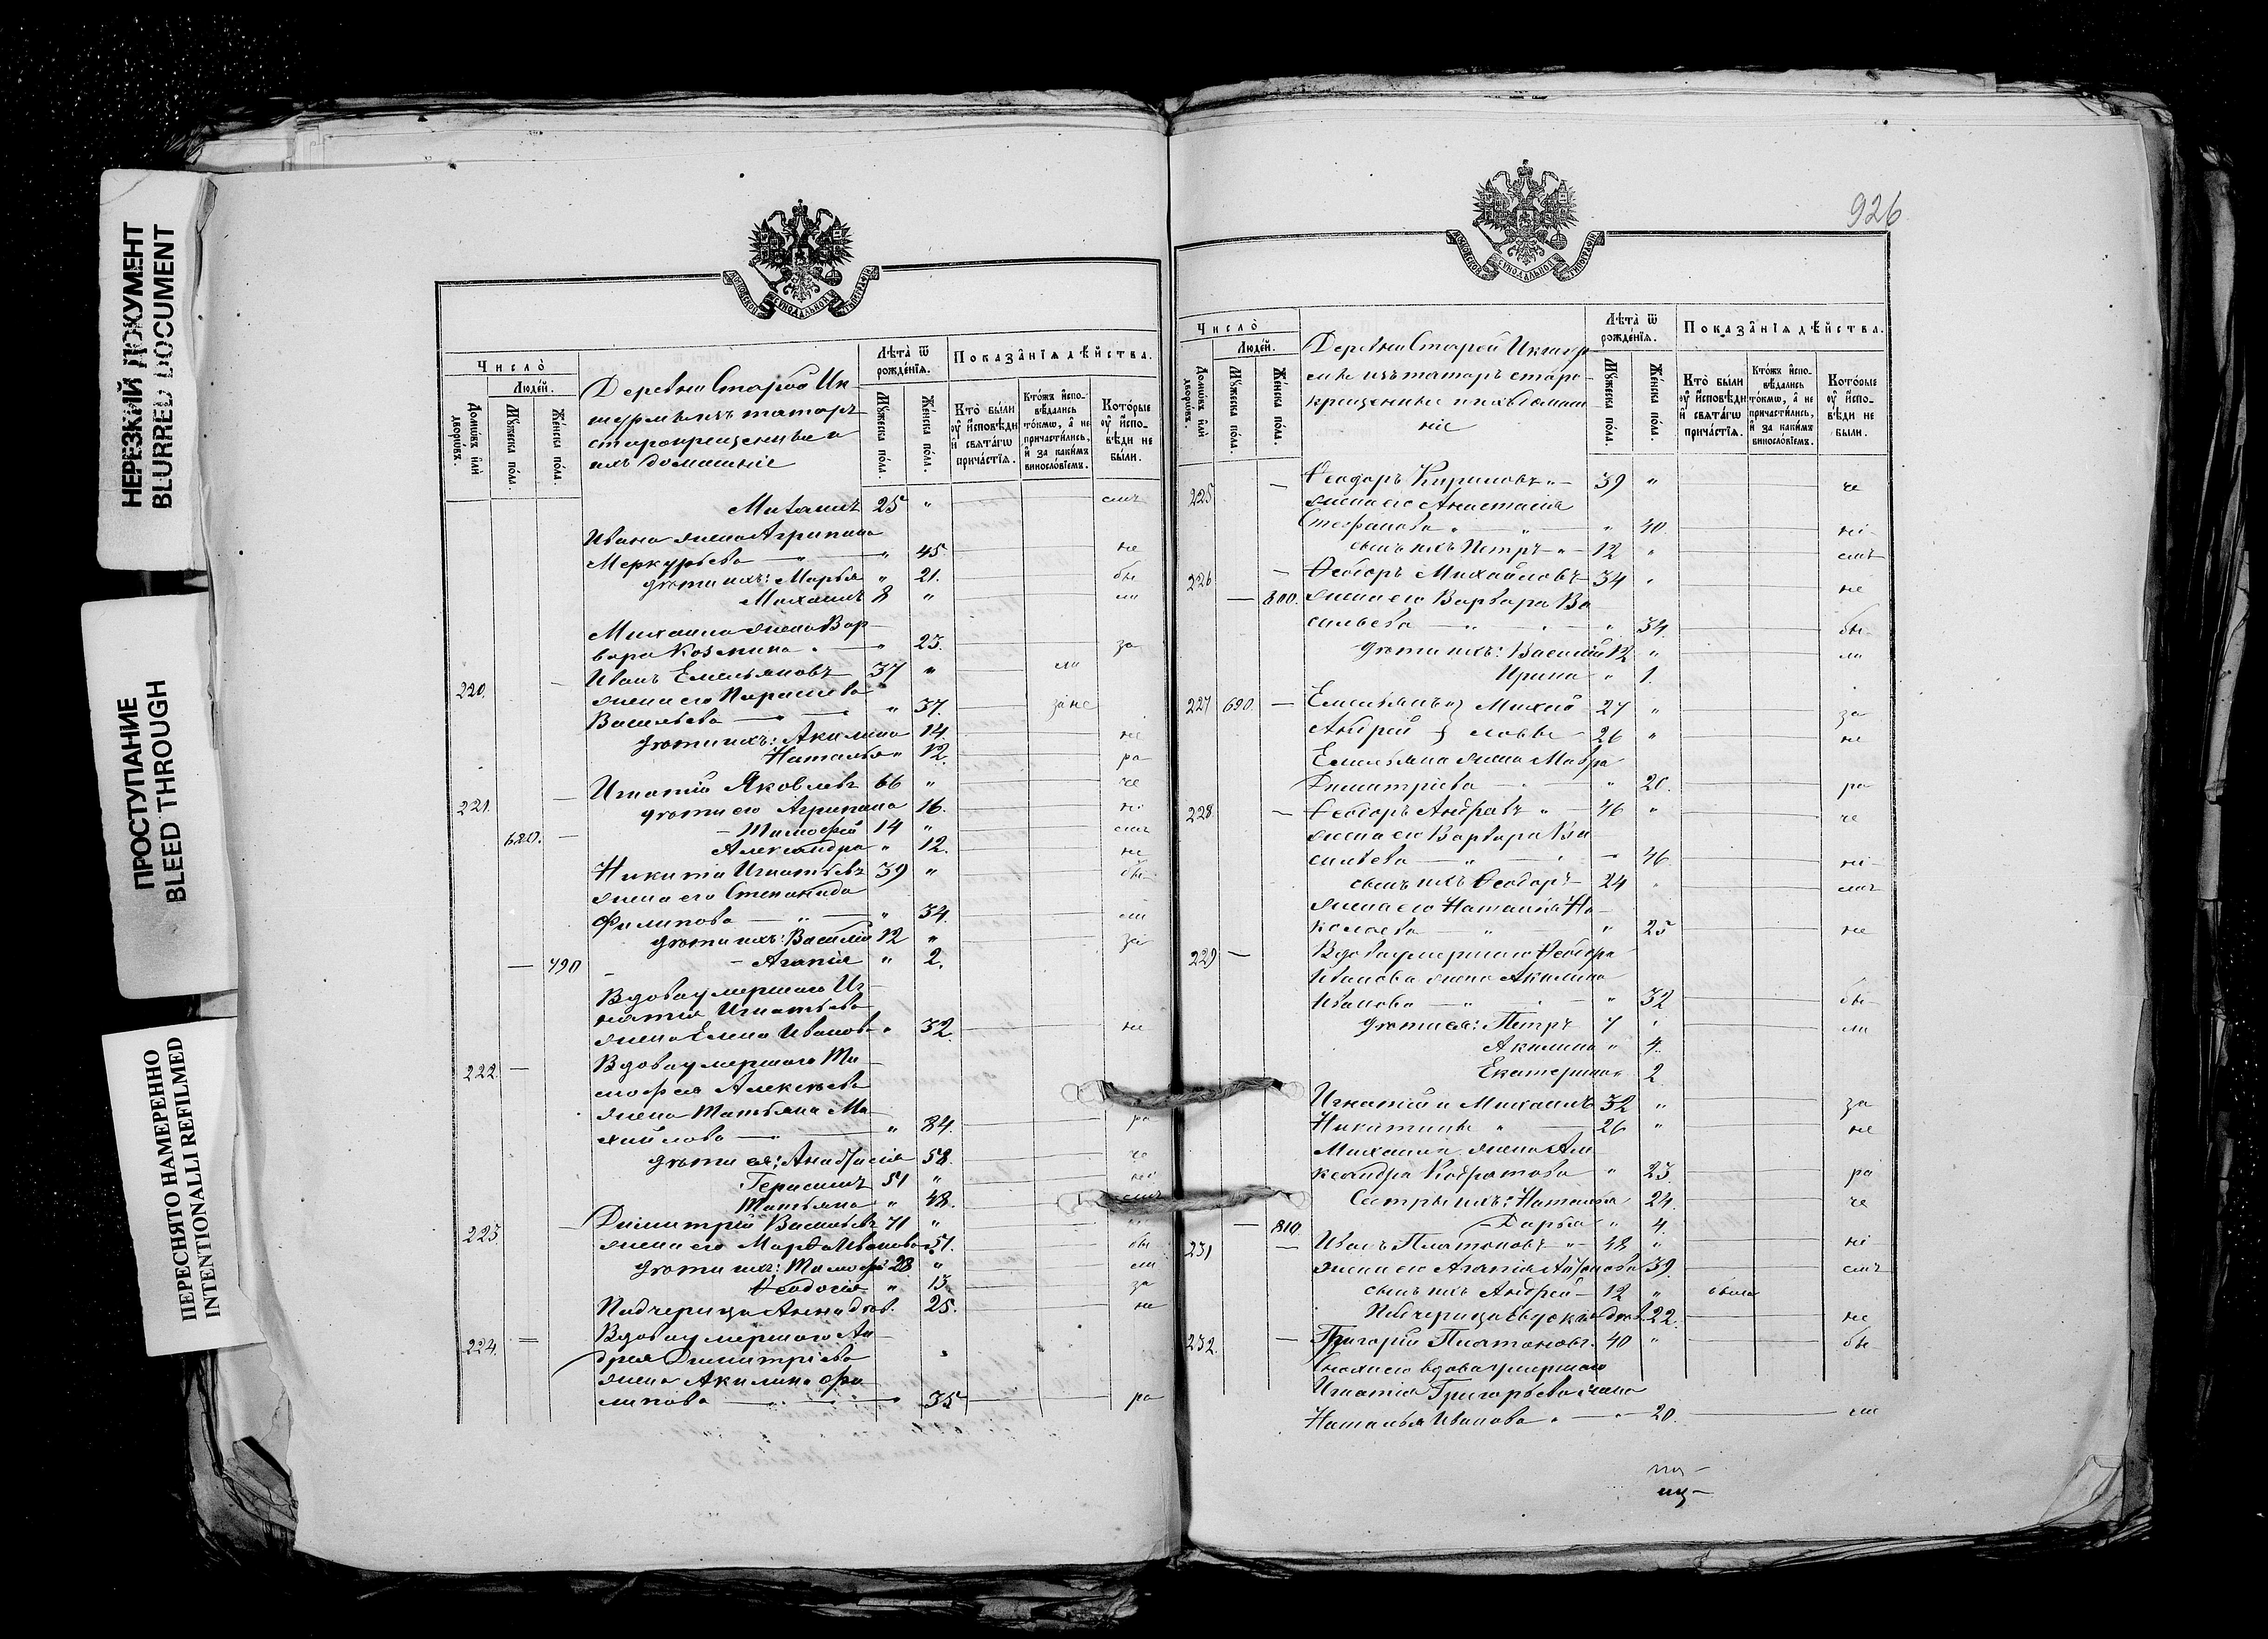 НЕРЕЗКИЙ ДОКУМЕНТ
BLURRED DOCUMENT
ПРОСТУПАНИЕ
BLEED THROUGH
ПЕРЕСНЯТО НАМЕРЕННО
INTENTIONALLI REFILMED
МОСКОВСКОЙ СУНОДАЛЬНОЙ ТѴПОГРАФІИ
Число̀
Людей.
Домѡвъ и҆лѝ дворѡвъ.
Мꙋжеска пола.
Женска пола.
Деревни Старой Ик
шурмѣ изъ татаръ
старокрещенные и
ихъ домашніе
Лѣта̀ ѿ рожденїѧ.
Мꙋжеска пола.
Женска пола.
Показанїѧ дѣйства.
Кто̀ были ᲂу҆ и҆сповѣди и҆ свѧтагѡ причастїѧ.
Ктожъ и҆сповѣдались токмѡ, а҆ не причастились, и҆ за какимъ винословїемъ.
Которые ᲂу҆ и҆сповѣди не были.
Михаилъ 25 " смъ
Ивана жена Агрипина
Меркурьева " 45. не
дѣти ихъ: Марья " 21. бы
Михаилъ 8 " ли
Михаила жена Вар
вара Козмина " 23. за
220. Иванъ Емельяновъ 37 " ли
жена его Параскева
Васильева " 37. за не
дѣти ихъ: Акилина 14. не
Наталья " 12. ра
221. Игнатій Яковлевъ 66 " че
дѣти его Агрипина 16. ні
680. Тимофей 14 " смъ
Александра " 12. не
Никита Игнатьевъ 39 " бы
жена его Степанида
Филипова " 34. ли
дѣти ихъ: Василій 12 " за
790 Агапія " 2.
Вдова умершаго Иг
натія Игнатьева
жена Елена Иванов. " 32. не
222. Вдова умершаго Ти
мофея Алексѣева
жена Татьяна Ми
хайлова " 84. ра
дѣти ея: Анастасія 58. че
Герасимъ 51 " ні
Татьяна " 48. смъ
223. Димитрій Васильевъ 71 " не
жена его Марѳа Иванова 51. бы
дѣти ихъ: Тимофей 28 " ли
Ѳеодосія " 13. за
Падчерица Анна дѣв. 25. не
224. Вдова умершаго Ан
дрея Димитріева
жена Акилина Фи
липова " 35 ра
926
МОСКОВСКОЙ СУНОДАЛЬНОЙ ТѴПОГРАФІИ
Число̀
Людей.
Домѡвъ и҆лѝ дворѡвъ.
Мꙋжеска пола.
Женска пола.
Деревни Старой Икшур
мѣ изъ татаръ старо
крещенные и ихъ домаш
ніе
Лѣта̀ ѿ рожденїѧ.
Мꙋжеска пола.
Женска пола.
Показанїѧ дѣйства.
Кто̀ были ᲂу҆ и҆сповѣди и҆ свѧтагѡ причастїѧ.
Ктожъ и҆сповѣдались токмѡ, а҆ не причастились, и҆ за какимъ винословїемъ.
Которые ᲂу҆ и҆сповѣди не были.
225 Ѳеодоръ Кириловъ " 39 " че
жена его Анастасія
Стефанова " 40. ні
сынъ ихъ Петръ " 12 " смъ
226 Ѳеодоръ Михайловъ 34 " не
800. жена его Варвара Ва
сильева " 34. бы
дѣти ихъ: Василій 12 " ли
Ирина " 1.
227 690. Емельянъ и } Михай 27 " за
Андрей } ловы 26 " не
Емельяна жена Мавра
Димитріева " 20. ра
228. Ѳеодоръ Андреевъ " 46 " че
жена его Варвара Ва
сильева " 46 ні
сынъ ихъ Ѳеодоръ 24 смъ
жена его Наталія Ни
колаева " 25 не
229 Вдова умершаго Ѳеодора
Иванова жена Акилина
Иванова " 32 бы
дѣти ея: Петръ 7 " ли
Акилина " 4.
Екатерина " 2
Игнатій и Михаилъ 32 " за
Никитины " 26 " не
Михаила жена Але
ксандра Кодратова " 23. ра
Сестры ихъ: Наталія 24. че
810. Дарья " 4.
231 Иванъ Платоновъ " 48 " ні
жена его Агапія Антонова 39. смъ
сынъ ихъ Андрей 12 " былъ
Падчерица Евдокія дѣв. 22. не
232. Григорій Платоновъ. 40 " бы
Сноха его вдова умершаго
Игнатія Григорьева жена
Наталья Иванова " 20. ли